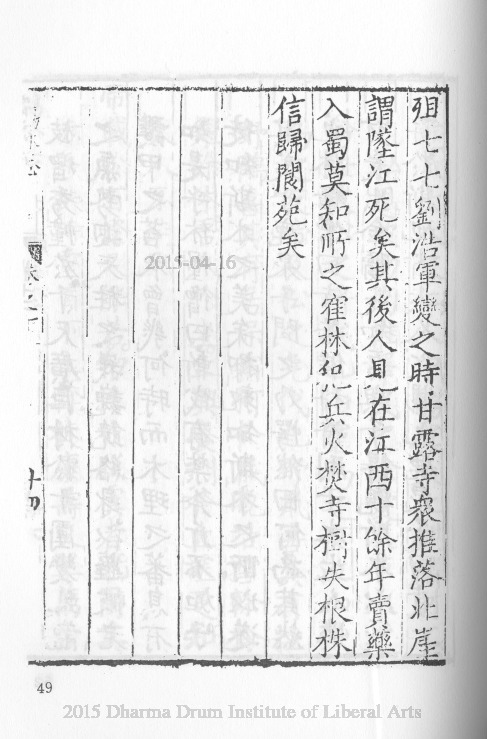 殂七七劉浩軍變之時甘露寺衆推落北崖
謂墜江死矣其後人見在江西十餘年賣藥
入蜀莫知所之寉林犯兵火焚寺樹失根株
信歸閬苑矣
十四
49
2015-04-16
2015 Dharma Drum Institute of Liberal Arts